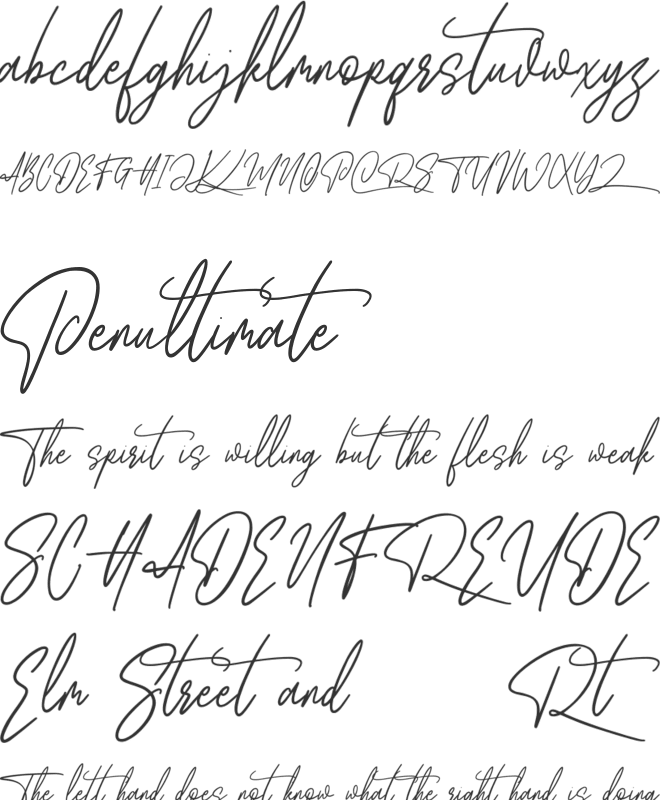 abcdefghijklmnopqrstuvwxyz
ABCDEFGHIJKLMNOPQRSTUVWXYZ
Penultimate
The spirit is willing but the flesh is weak
SCHADENFREUDE
Elm Street and Rt
The left hand does not know what the right hand is doing